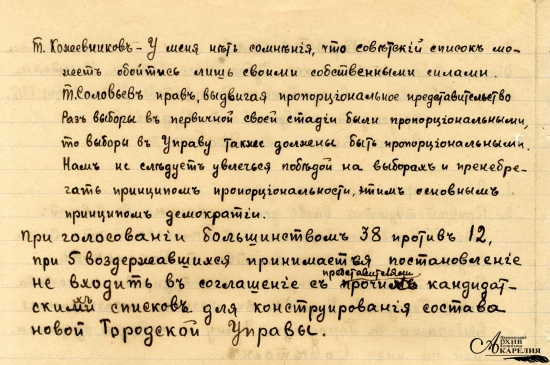 Т. Кожевниковъ – У меня нѣтъ сомнѣнія, что совѣтскій список мо-
жетъ обойтись лишь своими собственными силами.
Т. Соловьевъ правъ, выдвигая пропорціональное представительство
Разъ выборы въ первичной своей стадіи были пропорціональными,
то выборы въ Управу также должены быть пропорціональными.
Намъ не слѣдуетъ увлечься побѣдой на выборахъ и пренебре-
гать принципомъ пропорціональности, этимъ основнымъ
принципомъ демократіи.
При голосованіи большинствомъ 38 противъ 12,
при 5 воздержавшихся принимается постановленіе
представителями
не входить въ соглашеніе съ прочихъ кандидат-
скихъ списковъ для конструированія состава
новой Городской Управы.
АРХИВ
КАРЕЛИЯ